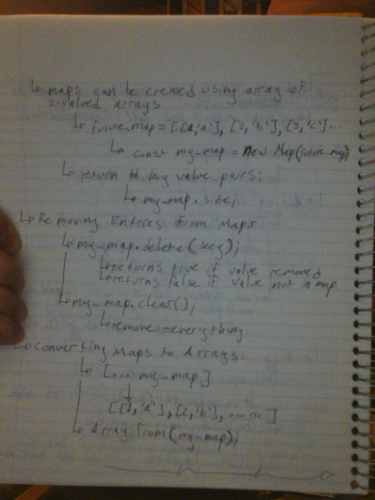 ↳ maps can be created using array of
2-valued arrays
↳ future_map = [[1,'a'], [2,'b'], [3,'c']...
↳ const my_map = new Map(future_map)
↳ return # key value pairs:
↳ my_map.size;
↳ Removing Entries From Maps
↳ my_map.delete(key);
↳ returns true if value removed
↳ returns false if value not in map
↳ my_map.clear();
↳ remove everything.
↳ Converting Maps to Arrays.
↳ [... my_map]
↓
[[1,'a'], [2,'b'], ......]
↳ Array.from(my_map);